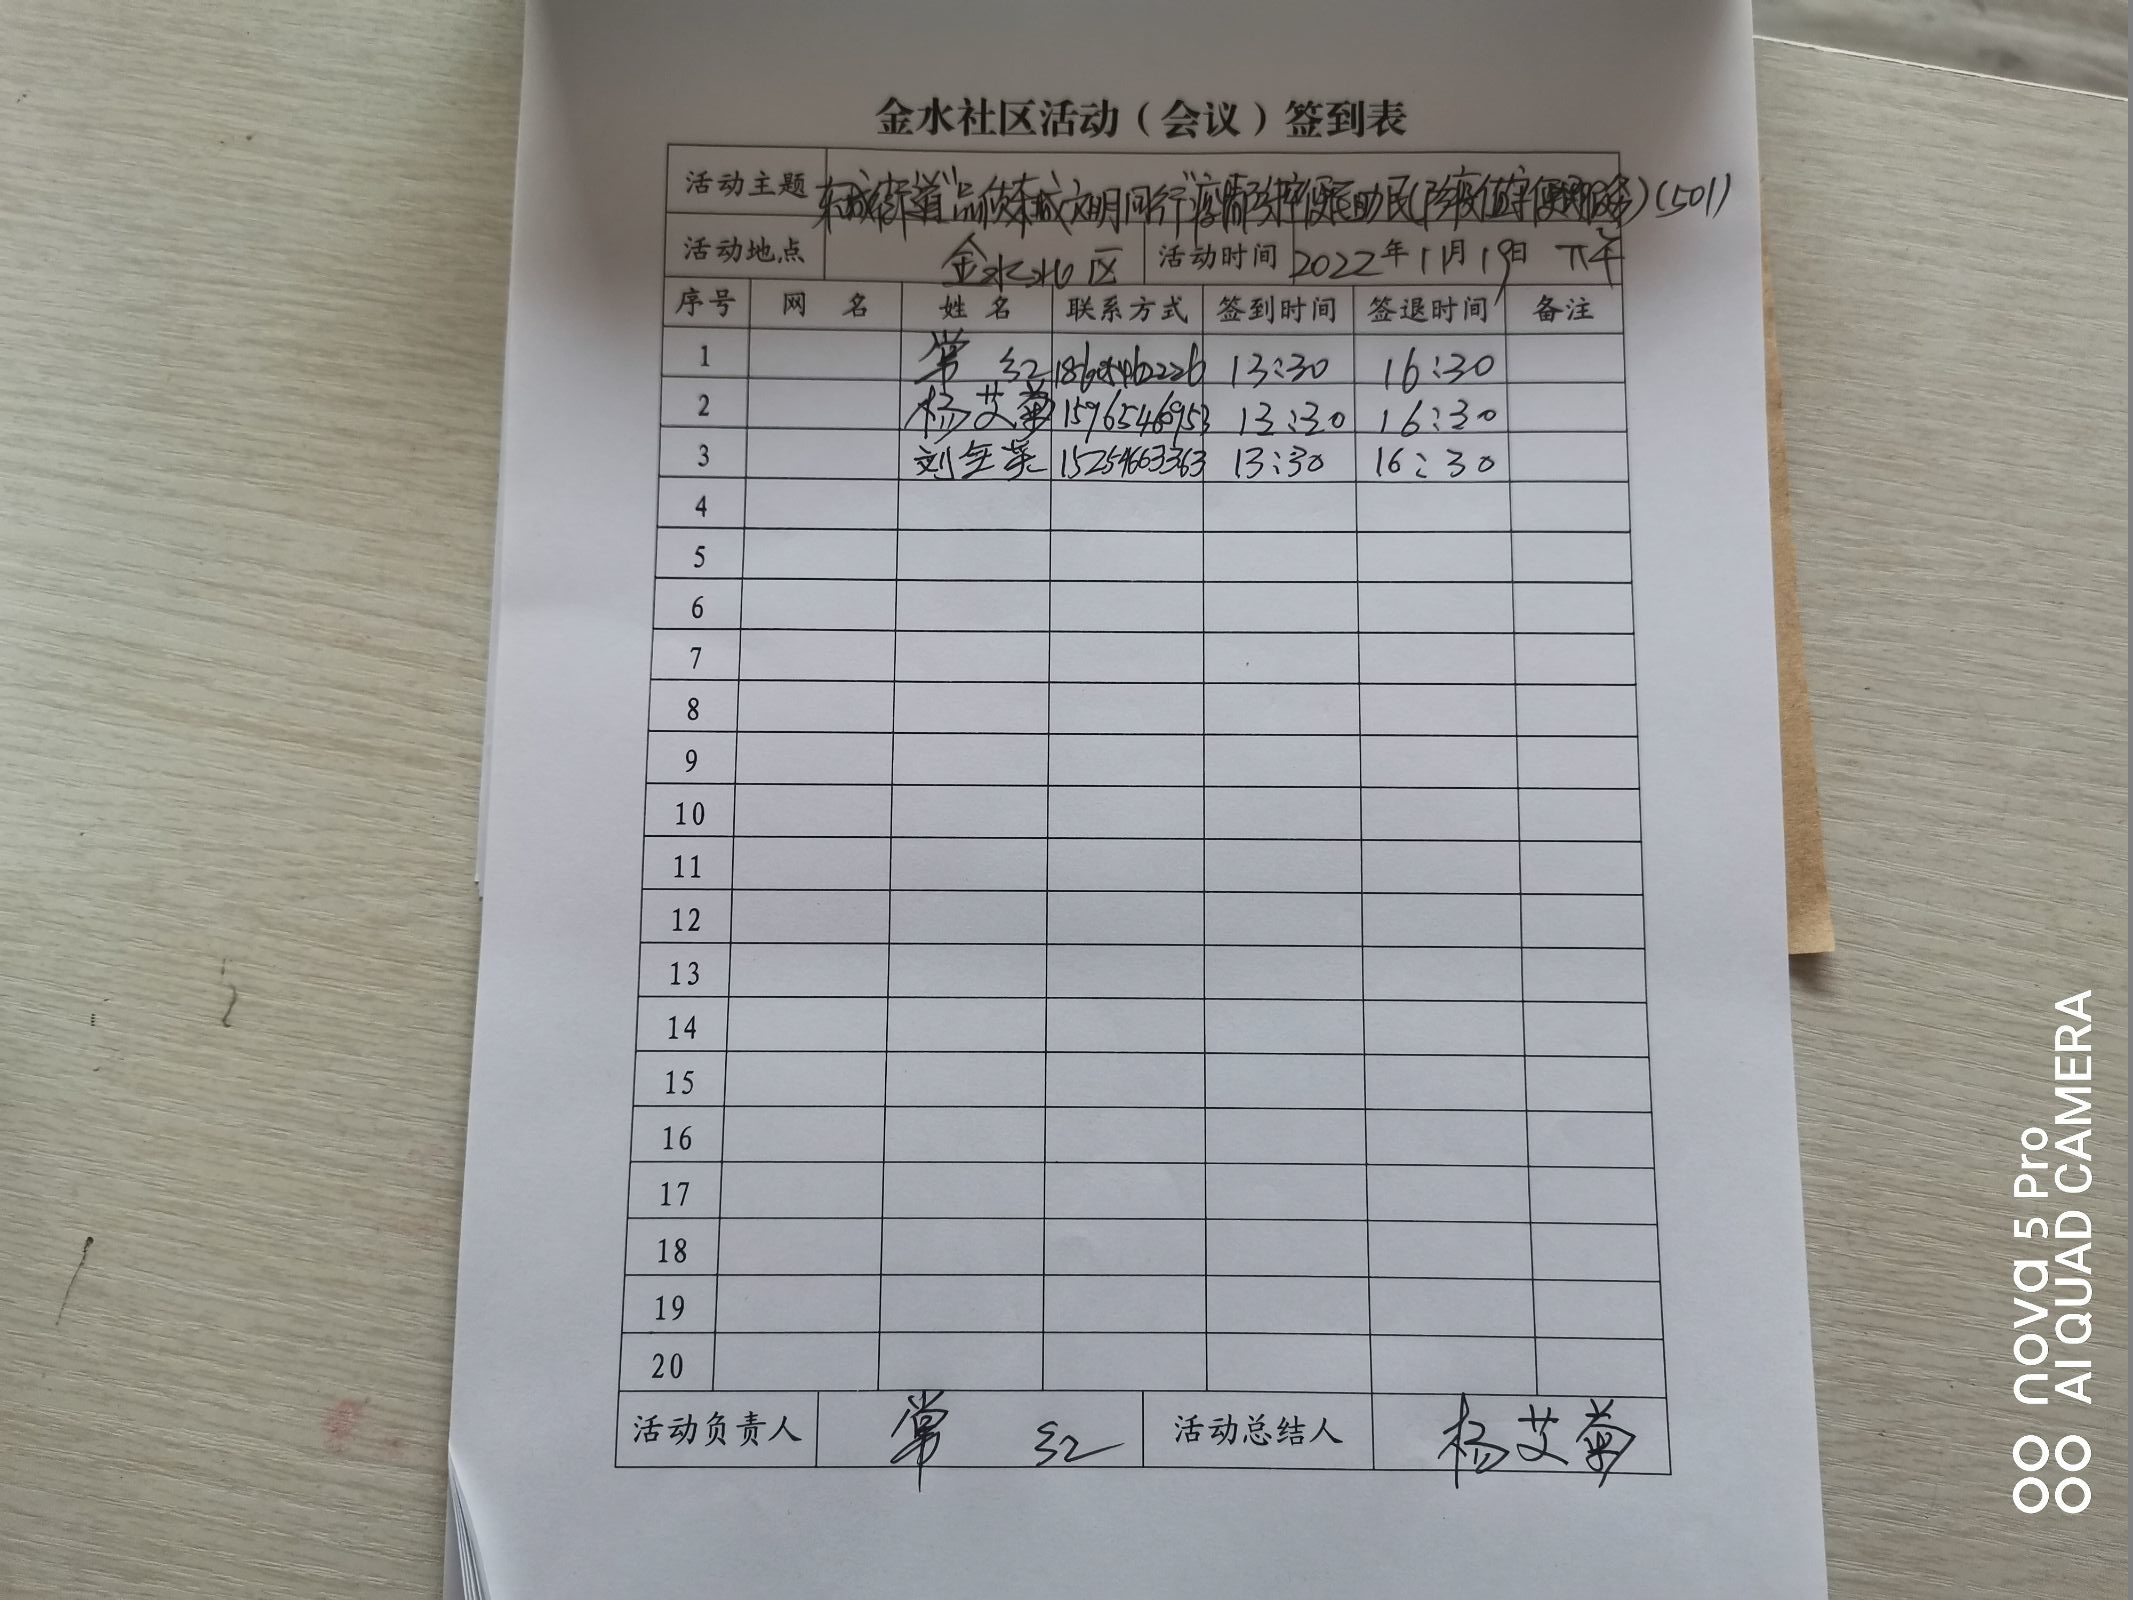 金水社区活动（会议）签到表
活动主题 东城街道"品质东城文明同行"疫情防控便民助民(防疫值守便民服务)(501)
活动地点 金水社区 活动时间 2022年11月19日 下午
序号 网 名 姓 名 联系方式 签到时间 签退时间 备注
1 常 红 13:30 16:30
2 杨艾菊 15965446953 13:30 16:30
3 刘 15254663363 13:30 16:30
4
5
6
7
8
9
10
11
12
13
14
15
16
17
18
19
20
活动负责人 常 红 活动总结人 杨艾菊
nova 5 Pro
AI QUAD CAMERA